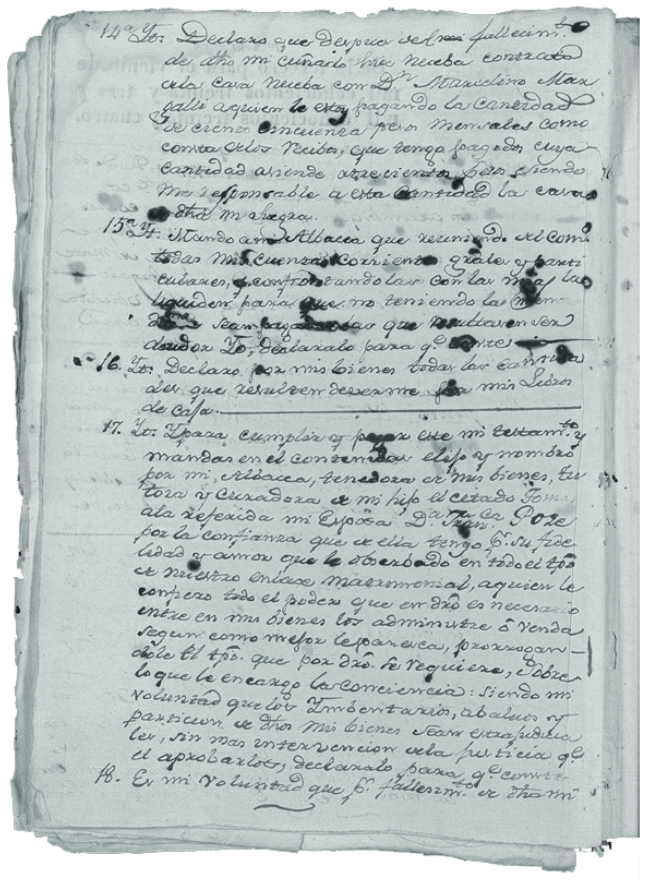 14ª Yt. Declaro que despues del mi fallecimto.
de dho mi cuñado hice nueba contrata
de la casa nueba con Dn. Marcelino Mar
galli a quien le estoy pagando la cantidad
de ciento cincuenta pesos mensales como
consta de los recibos, que tengo pagados cuya
cantidad asiende a trescientos pesos siendo
me responsable a esta cantidad la casa
de dha mi suegra.
15ª Yt. Mando a mi Albacea que reuniendo
todas mis cuentas corrientes grales y parti
culares, y confrontandolas con las
liquiden para que no teniendo las
sean pagadas las que resultasen ser
deudor Yo; declaralo para qe. conste
16. Yt. Declaro por mis bienes todas las cantida
des que resulten deverme por mis Libros
de casa.
17. Yt. Y para cumplir y pagar este mi testamto. y
mandas en el contenidas elijo y nombro
por mi Albacea, tenedora de mis bienes, tu
tora y curadora de mi hijo el citado Tomas
a la referida mi Esposa Da. Franca. Poze
por la confianza que de ella tengo pr. su fide
lidad y amor que le obserbado en todo el tpo.
de nuestro enlaze matrimonial, a quien le
confiero todo el poder que en dro es necesario
entre en mis bienes los administre ó venda
segun como mejor le paresca, prorrogan-
dole El tpo. que por dro. se requiere, sobre
lo que le encargo la conciencia: siendo mi
voluntad que los Ymbentarios, abaluos y
particion de dhos mis bienes sean extrajudicia
les, sin mas intervencion de la justicia qe.
el aprobarlos, declaralo para qe. conste.
18. Es mi voluntad que pr. fallesimto. de dha mi